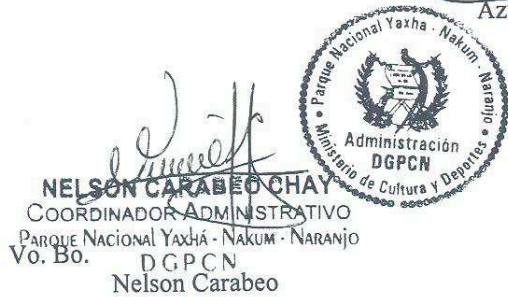 Az
Parque Nacional Yaxha - Nakum - Naranjo
Administración
DGPCN
Ministerio de Cultura y Deportes
NELSON CARABEO CHAY
COORDINADOR ADMINISTRATIVO
PARQUE NACIONAL YAXHÁ - NAKUM - NARANJO
Vo. Bo. DGPCN
Nelson Carabeo